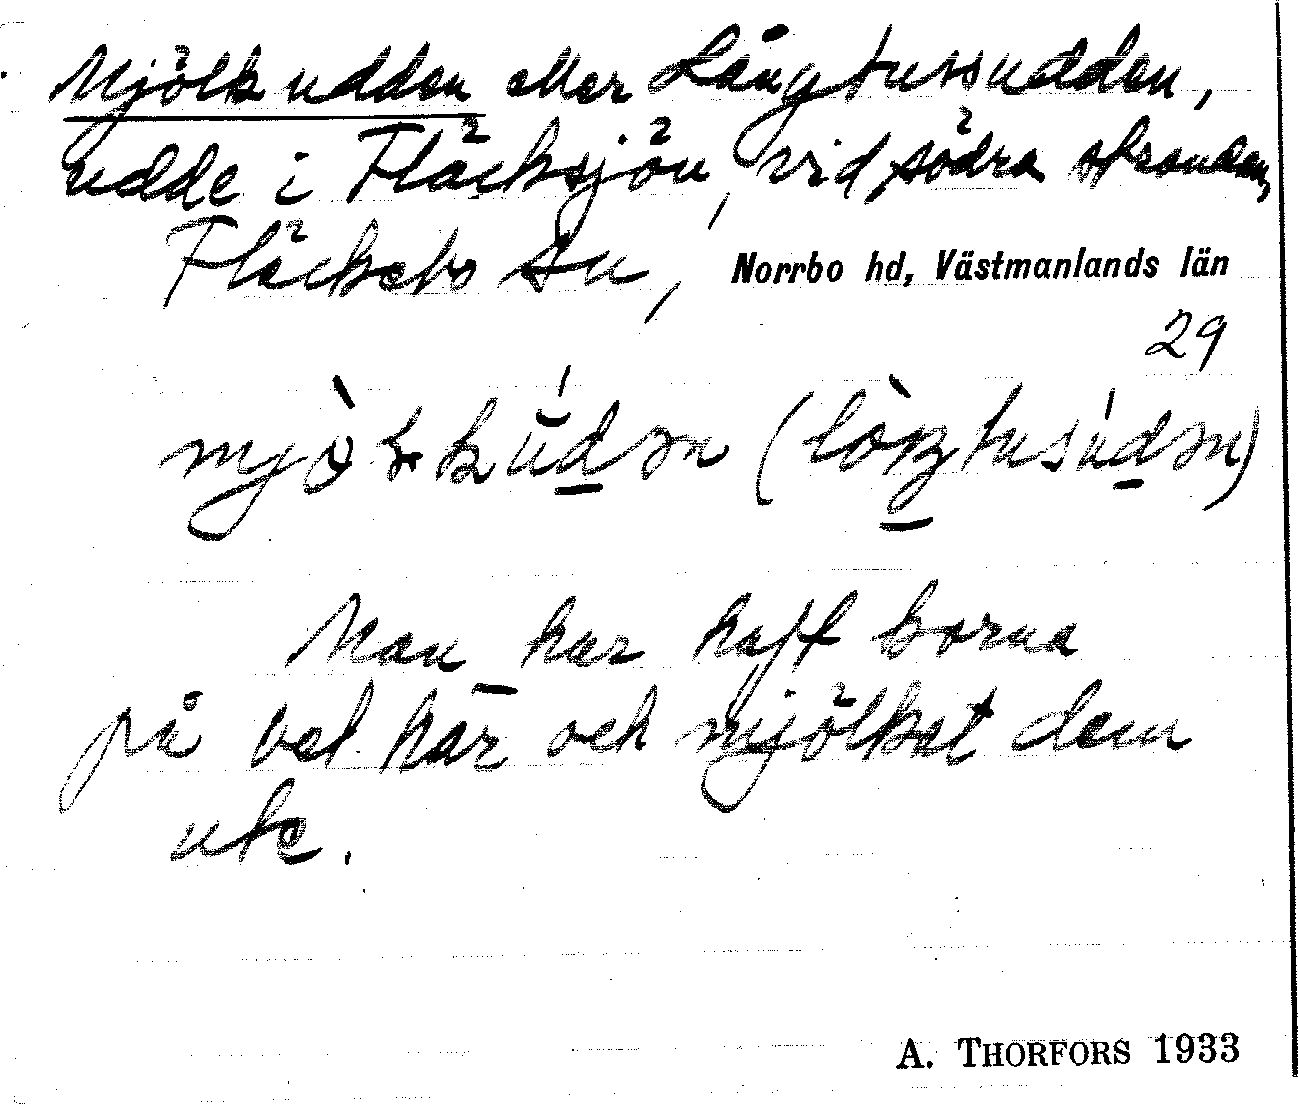 Mjölkudden eller Långtussudden,
udde i Fläcksjön, vid södra stranden,
Fläckebo sn, Norrbo hd, Västmanlands län
29
Man har haft korna
på bet här och mjölkat dem
ute.
A. THORFORS 1933